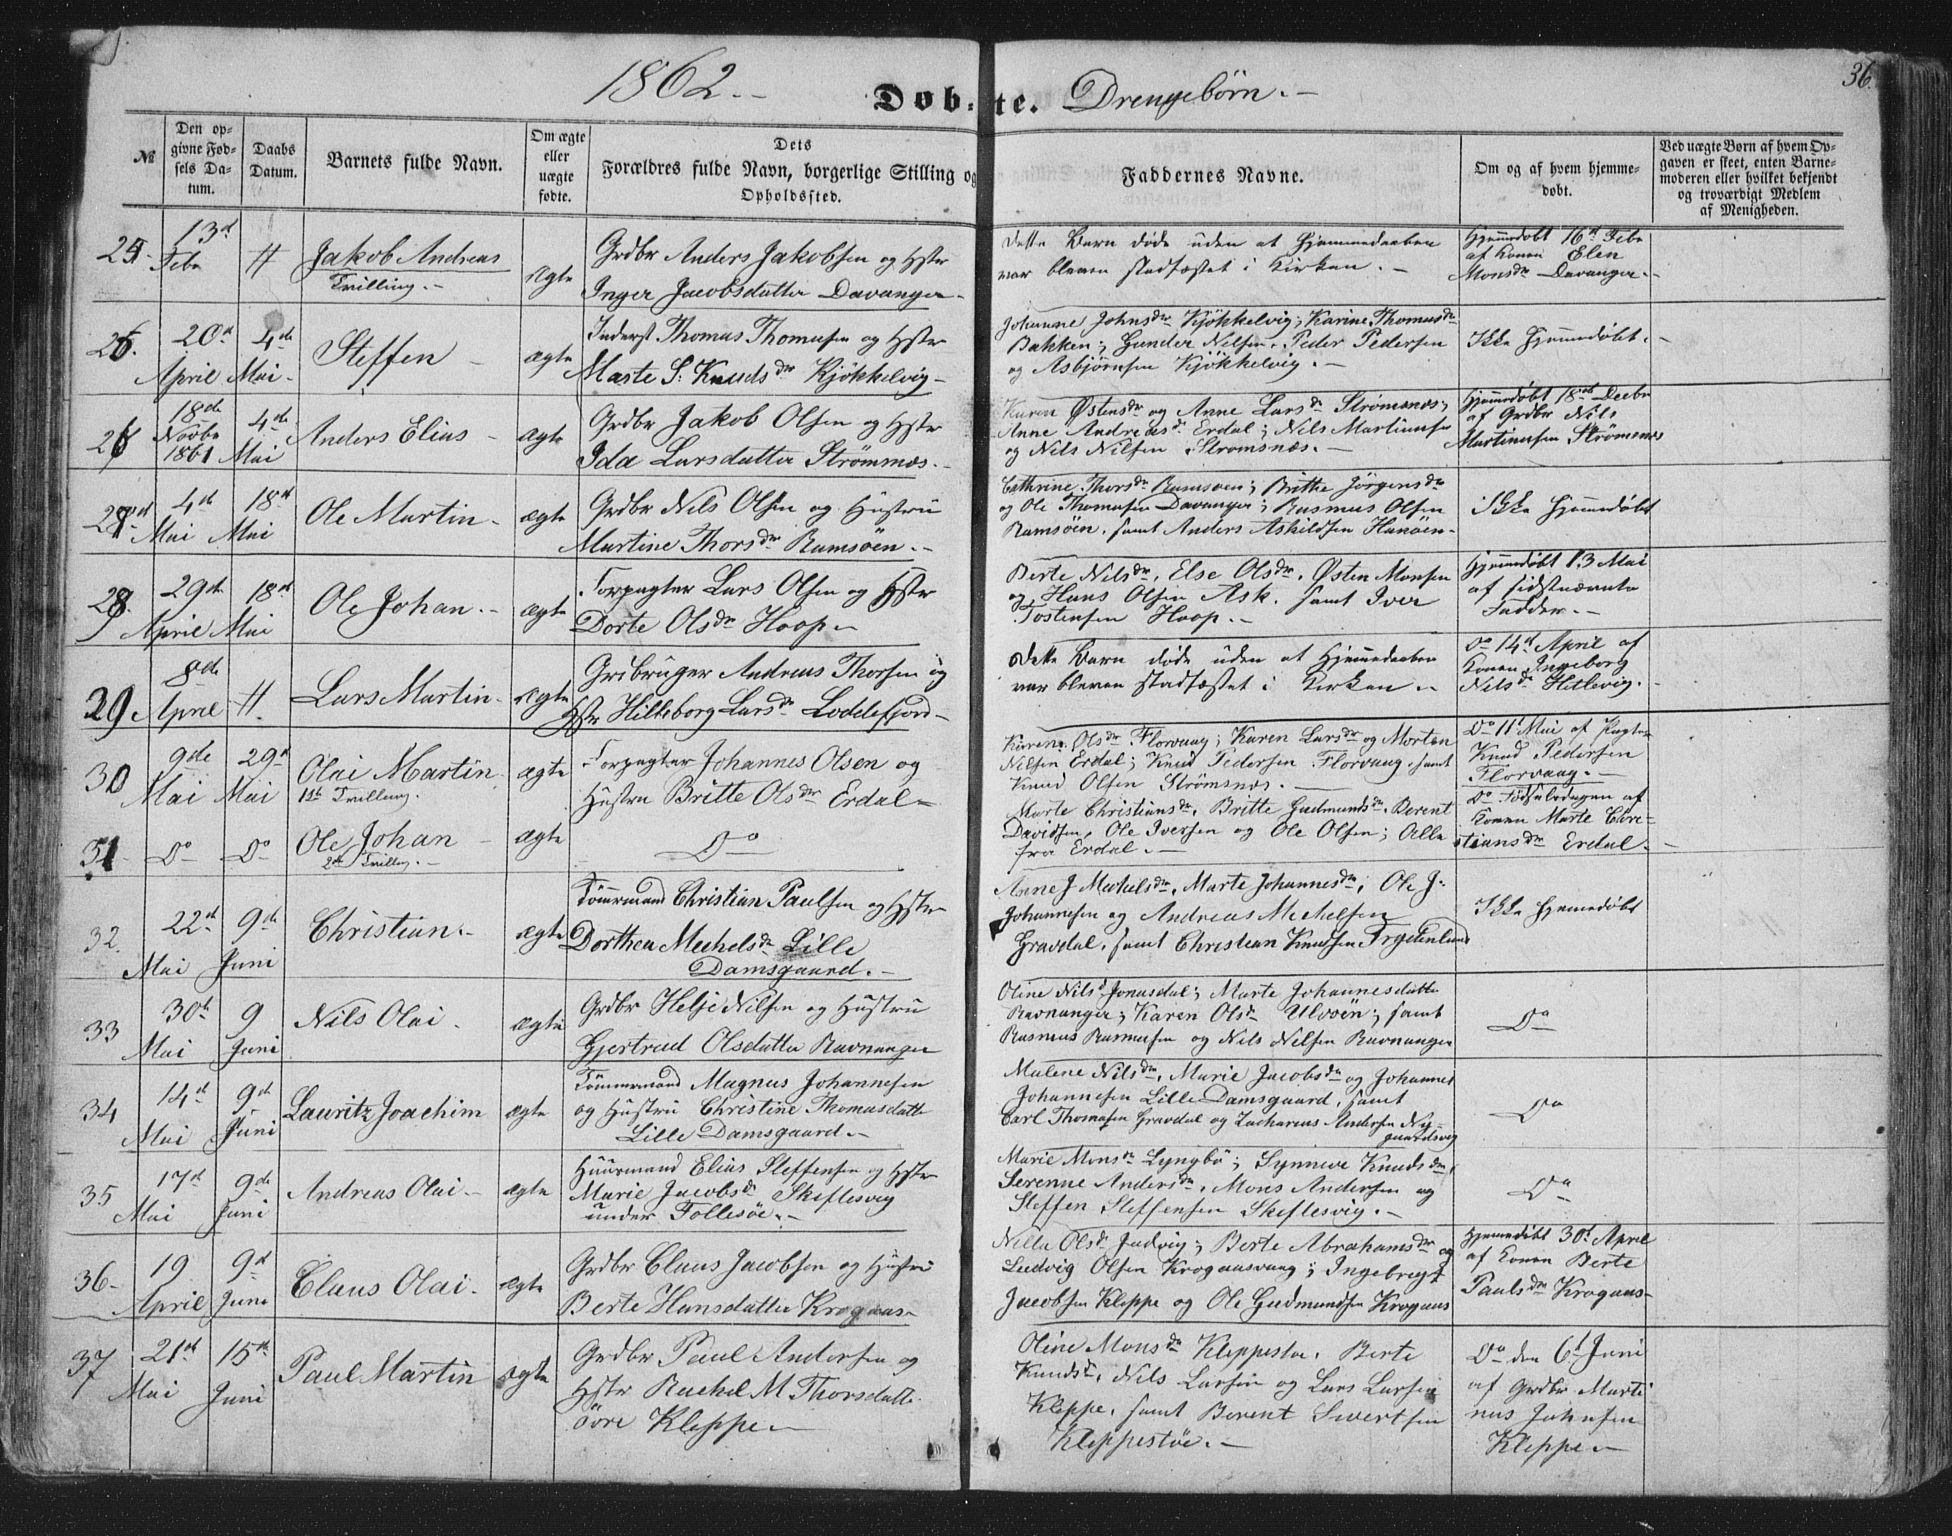 1862.-
Døb-te.
Drengebørn.-
36.
№
Den op-
givne Fød-
sels Da-
tum.
Daabs
Datum.
Barnets fulde Navn.
Om ægte
eller
uægte
fødte.
Dets
Forældres fulde Navn, borgerlige Stilling og
Opholdssted.
Faddernes Navne.
Om og af hvem hjemme-
døbt.
Ved uægte Børn af hvem Op-
gaven er skeet, enten Barne-
moderen eller hvilket bekjendt
og troværdigt Medlem
af Menigheden.
13d
Febr
Jakob Andreas
Trilling.-
ægte
Grdbr Anders Jakobsen og Hstr
Inger Jacobsdatter Davanger-
Dette Barn døde uden at Hjemmedaaben
var bleven stadfæstet i Kirken.-
Hjemmdøbt 16d Febr
af Konen Elen
Monsdr Davanger.-
20d
April
4de
Mai-
Steffen-
ægte
Inderst Thomas Thomasen og Hstr
Marte S: Knudsdr Kjøkkelvig-
Johanne Johnsdr Kjøkkelvig; Karine Thomasdr
Bakken; Gunder Nilsen, Peder Pedersen
og Asbjørnsen Kjøkkelvig.-
Ikke Hjemmdøbt.-
18de
Novbr
1861
4de
Mai
Anders Elias-
ægte
Grdbr Jakob Olsen og Hstr
Ida Larsdatter Strømsnæs.-
Karen Østensdr og Anne Larsdr Strømsnæs;
Anne Andreasdr Erdal; Nils Martinusen
og Nils Nilsen Strømsnæs.-
Hjemmdøbt 18de Decbr
af Grdbr Nils
Martinusen Strømsnæs
4d
Mai
18d
Mai
Ole Martin-
ægte
Grdbr Nils Olsen og Hustru
Martine Thorsdr Ramsøen.-
Cathrine Thorsdr Ramsøen; Brithe Jørgensdr
og Ole Thomasen Davanger; Rasmus Olsen
Ramsøen, samt Anders Askildsen Hanøen-
Ikke Hjemmdøbt
28.
29de
April
18d
Mai
Ole Johan.-
ægte
Forpagter Lars Olsen og Hstr
Dorte Olsdr Hoop-
Berte Nilsdr, Else Olsdr, Østen Monsen
og Hans Olsen Ask, samt Iver
Tostensen Hoop.-
Hjemmdøbt 13 Mai
af sidstnævnte
Fadder.-
29.
8de
April
Lars Martin-
ægte
Grdbruger Andreas Thorsen og
Hstr Hilleborg Larsdr Loddefjord-
Dette Barn døde uden at Hjemmedaaben
var bleven stadfæstet i Kirken.-
Do 14d April af
Konen Ingeborg
Nilsdr Hetlevig.-
30
9de
Mai
29d
Mai
Olai Martin
1ste Tvilling.
ægte
Forpagter Johannes Olsen og
Hustru Britte Olsdr Erdal-
Karen Olsdr Florvaag; Karen Larsdr og Morten
Nilsen Erdal; Knud Pedersen Florvaag, samt
Knud Olsen Strømsnæs.-
Do 11d Mai af Pagter
Knud Pedersen
Florvaag.-
31.
Do
Do
Ole Johan-
2den Tvilling.-
ægte
Do
Marte Christiansdr, Britte Gudmundsdr, Berent
Davidsen, Ole Iversen og Ole Olsen; Alle
fra Erdal.-
Do Fødselsdagen af
Konen Marte Chri-
stiansdr Erdal-
32.
22d
Mai
9de
Juni
Christian.-
ægte
Tømrmand Christian Paulsen og Hstr
Dorthea Mechelsdr Lille
Damsgaard.-
Anne J Mechelsdr, Marte Johannesdr, Ole J:
Johannesen og Andreas Mechelsen
Gravdal, samt Christian Knudsen
Ikke Hjemmdøbt
33
30d
Mai
9
Juni
Nils Olai.
ægte
Grdbr Helje Nilsen og Hustru
Gjertrud Olsdatter Ravnanger
Oline Nilsd Jonasdal; Marte Johannesdatter
Ravnanger; Karen Olsdr Ulvøen; samt
Rasmus Rasmusen og Nils Nilsen Ravnanger
Do
34
14d
Mai
9d
Juni
Lauritz Joachim
ægte
Tømmermand Magnus Johannesen
og Hustru Christine Thomasdatter
Lille Damsgaard.-
Malene Nilsdr, Marie Jacobsdr og Johannes
Johannesen Lille Damsgaard, samt
Carl Thomasen Gravdal og Zacharias Andersen Ny-
gaardsvig
Do
35
17d
Mai
9de
Juni
Andreas Olai-
ægte
Huusmand Elias Steffensen og Hstr
Marie Jacobsdr Skiftesvig
under Follesøe.-
Marie Monsdr Lyngbø; Synneve Knudsdr,
Serenne Andersdr, Mons Andersen og
Steffen Steffensen Skiftesvig.-
Do
36-
19
April
9d
Juni
Claus Olai.
ægte
Grdbr Claus Jacobsen og Hustru
Berte Hansdatter Krogaas-
Nilla Olsdr Judvig; Berte Abrahamsdr og
Ludvig Olsen Krogaasvaag; Ingebregt
Jacobsen Kleppe og Ole Gudmundsen Krogaas
Hjemmdøbt 30d April
af Konen Berte
Paulsdr Krogaas-
37
21d
Mai
15de
Juni
Paul Martin
ægte
Grdbr Paul Andersen og
Hstr Rachel M Thorsdatter
øvre Kleppe-
Oline Monsdr Kleppestøe, Berte
Knudsdr, Nils Larsen og Lars Larsen
Kleppe, samt Berent Sivertsen
Kleppestøe.-
Do den 6d Juni
af Grdbr Marti-
nus Johnsen
Kleppe-